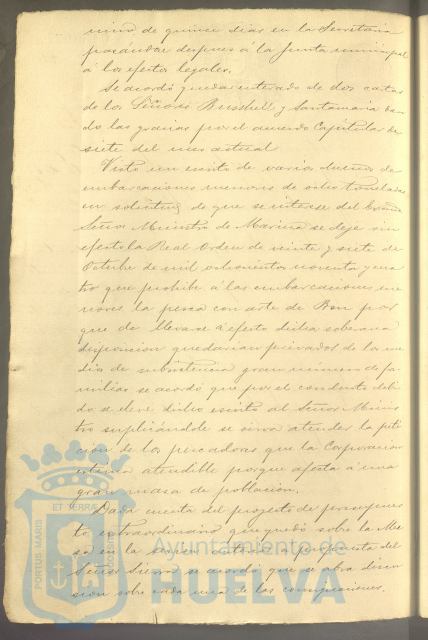 mino de quince dias en la Secretaria
pasandose despues á la Junta municipal
á los efectos legales.
Se acordó quedar enterado de dos cartas
de los Señores Bushell y Santamaria dan-
do las gracias por el acuerdo Capitular de
siete del mes actual
Visto un escrito de varios dueños de
embarcaciones menores de ocho toneladas
en solicitud de que se interese del Excmo
Señor Ministro de Marina se deje sin
efecto la Real Orden de veinte y siete de
Octubre de mil ochocientos noventa y cua
tro que prohibe á las embarcaciones me
nores la pesca con arte de Bou por
que de llevarse á efecto dicha soberana
disposicion quedarian privados de los me
dios de subsistencia gran numero de fa
milias se acordó que por el conducto debi
do se eleve dicho escrito al Señor Minis
tro suplicándole se sirva atender la peti
cion de los pescadores que la Corporacion
estima atendible porque afecta á una
gran masa de poblacion.
Dada cuenta del proyecto de presupues
to extraordinario que quedó sobre la Me
sa en la sesion anterior á propuesta del
Señor Sierra se acordó que se abra discu
sion sobre cada una de las consignaciones.
PORTUS MARIS
ET TERRÆ
Ayuntamiento de
HUELVA